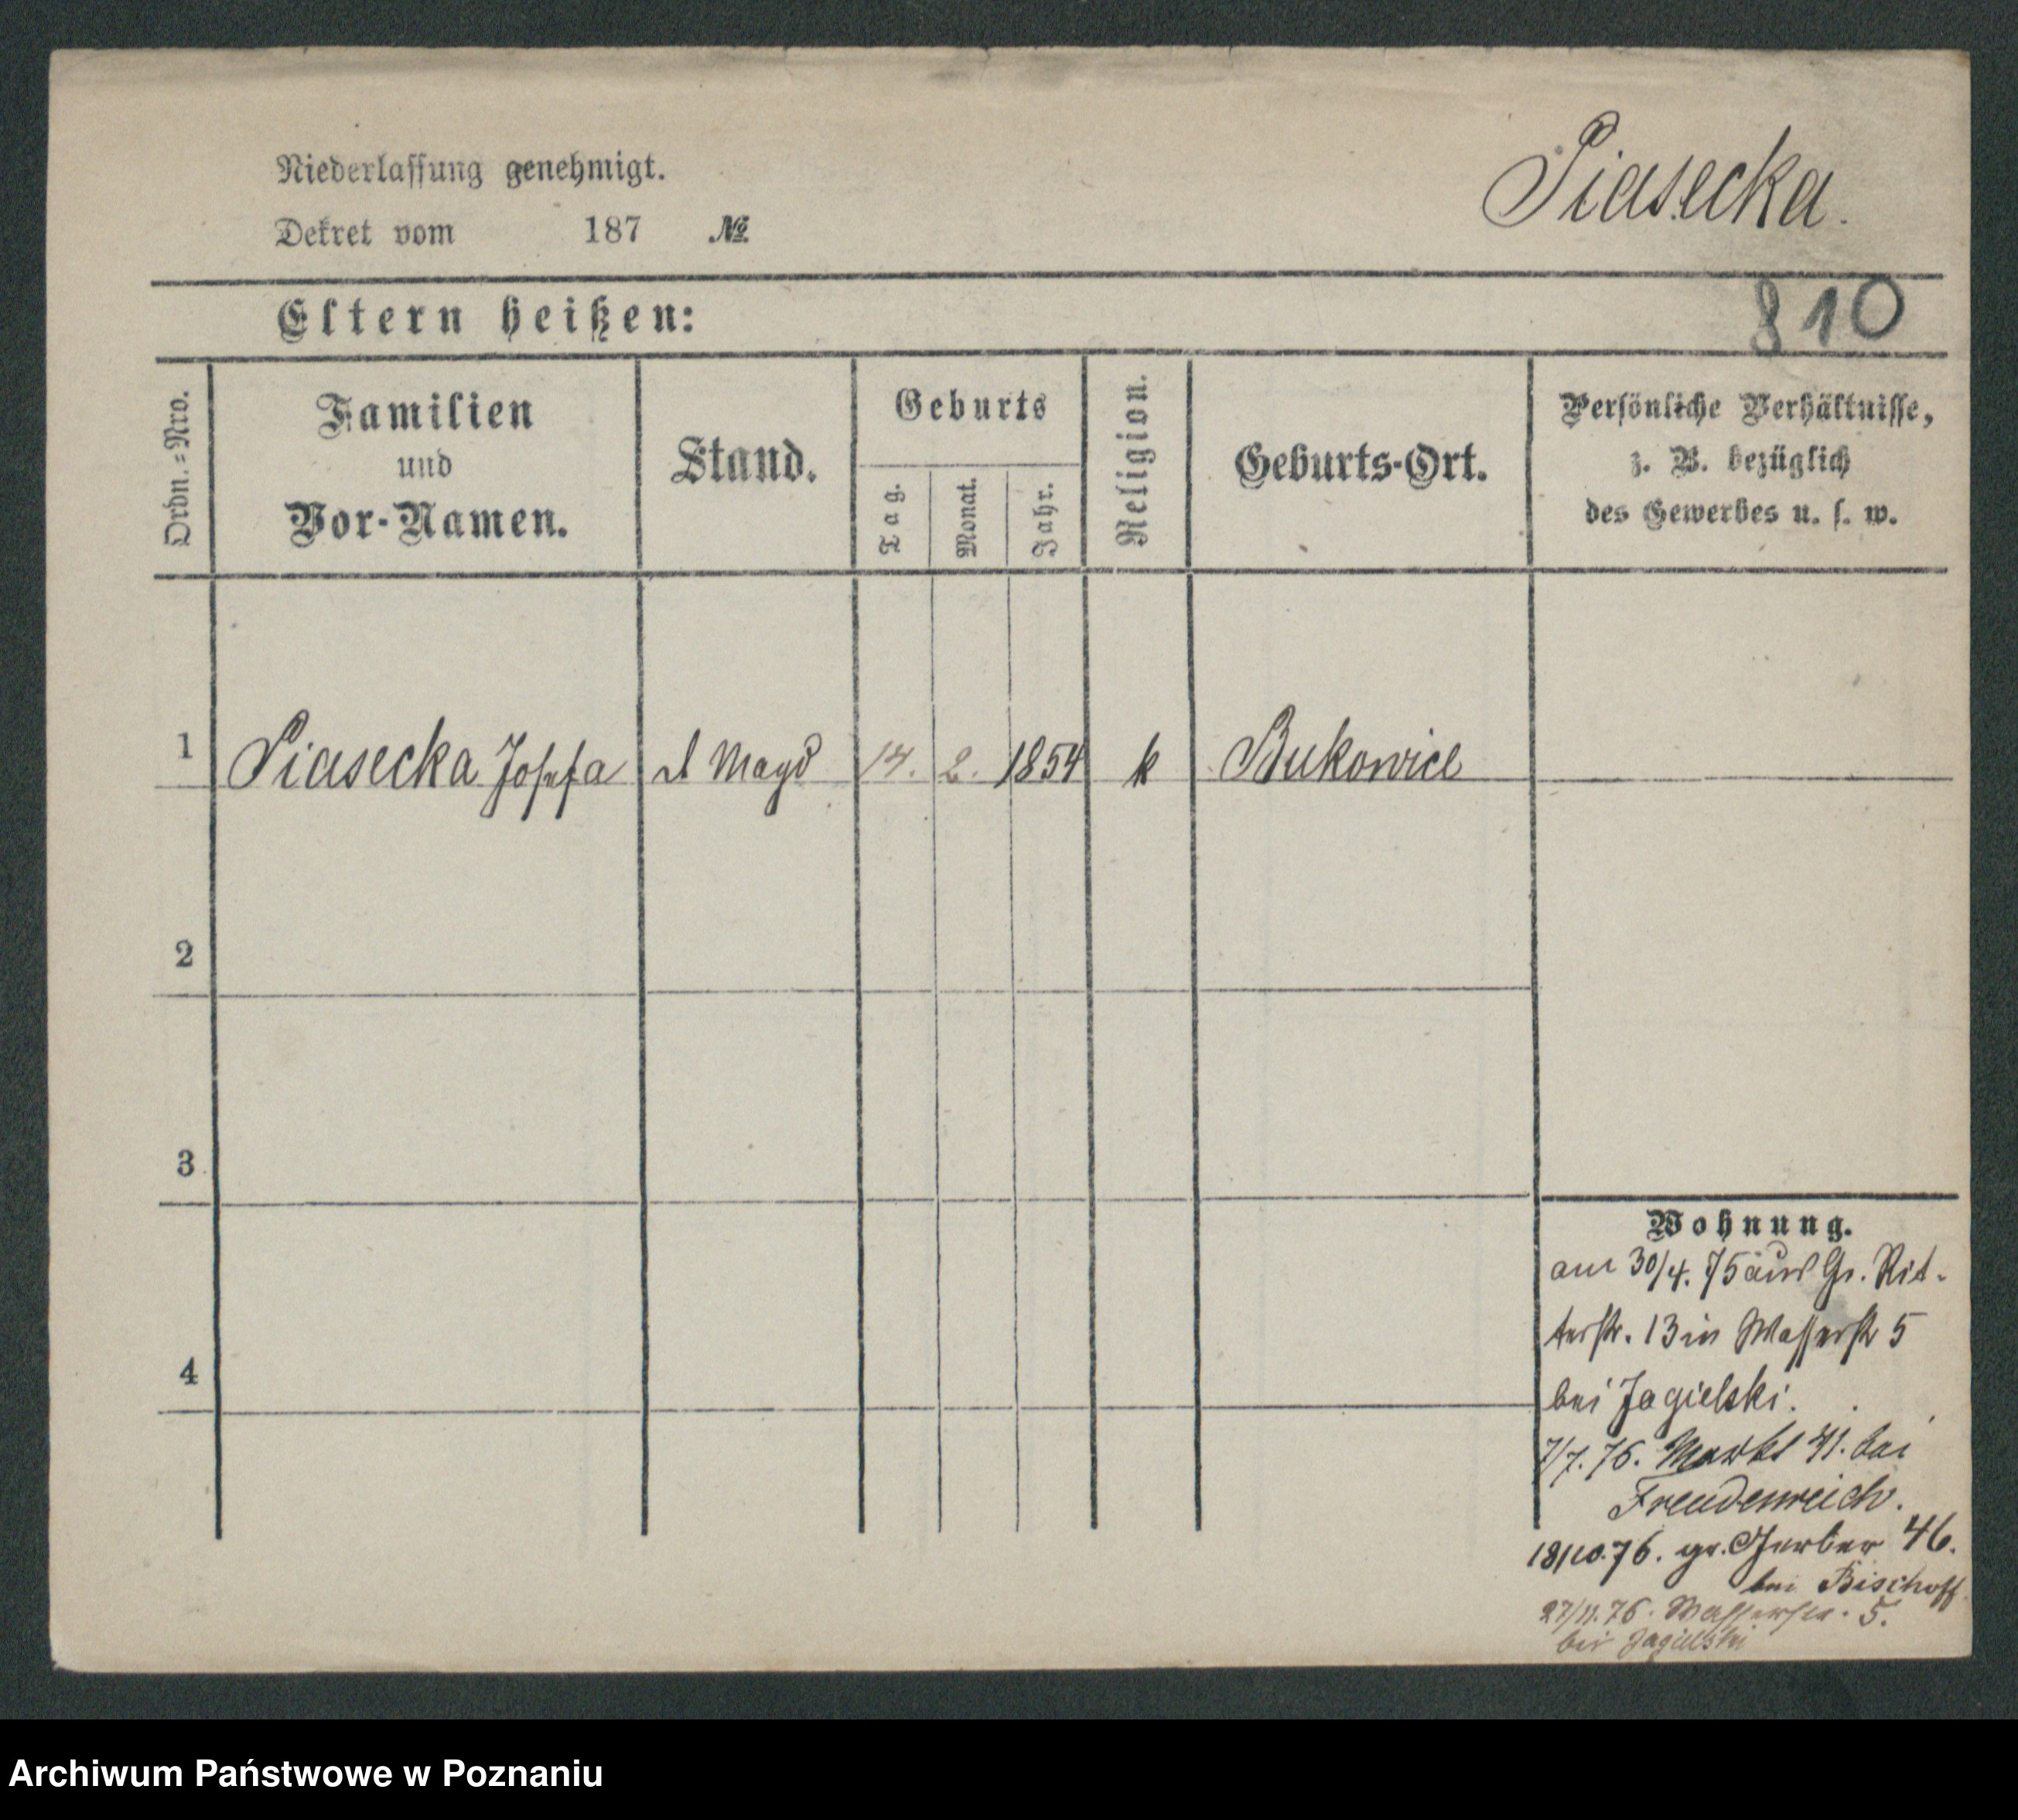 Niederlassung genehmigt.
Dekret vom 187 №
Piasecka.
810
Eltern heißen:
Ordn.=Nro.
Familien
und
Vor-Namen.
Stand.
Geburts
Tag.
Monat.
Jahr.
Religion.
Geburts-Ort.
Persönliche Verhältnisse,
z. B. bezüglich
des Gewerbes u. s. w.
1 Piasecka Josefa d Magd 14. 2. 1854 k Bukowice
2
3
4
Wohnung.
am 30/4. 75 aus Gr. Rit-
terstr. 13 in Wasserstr 5
bei Jagielski.
7/7. 76. Markt 41. bei
Freudenreich.
18/10. 76. gr. Gerber 46.
bei Bischoff
27/11. 76. Wasserstr. 5.
bei Jagielski
Archiwum Państwowe w Poznaniu